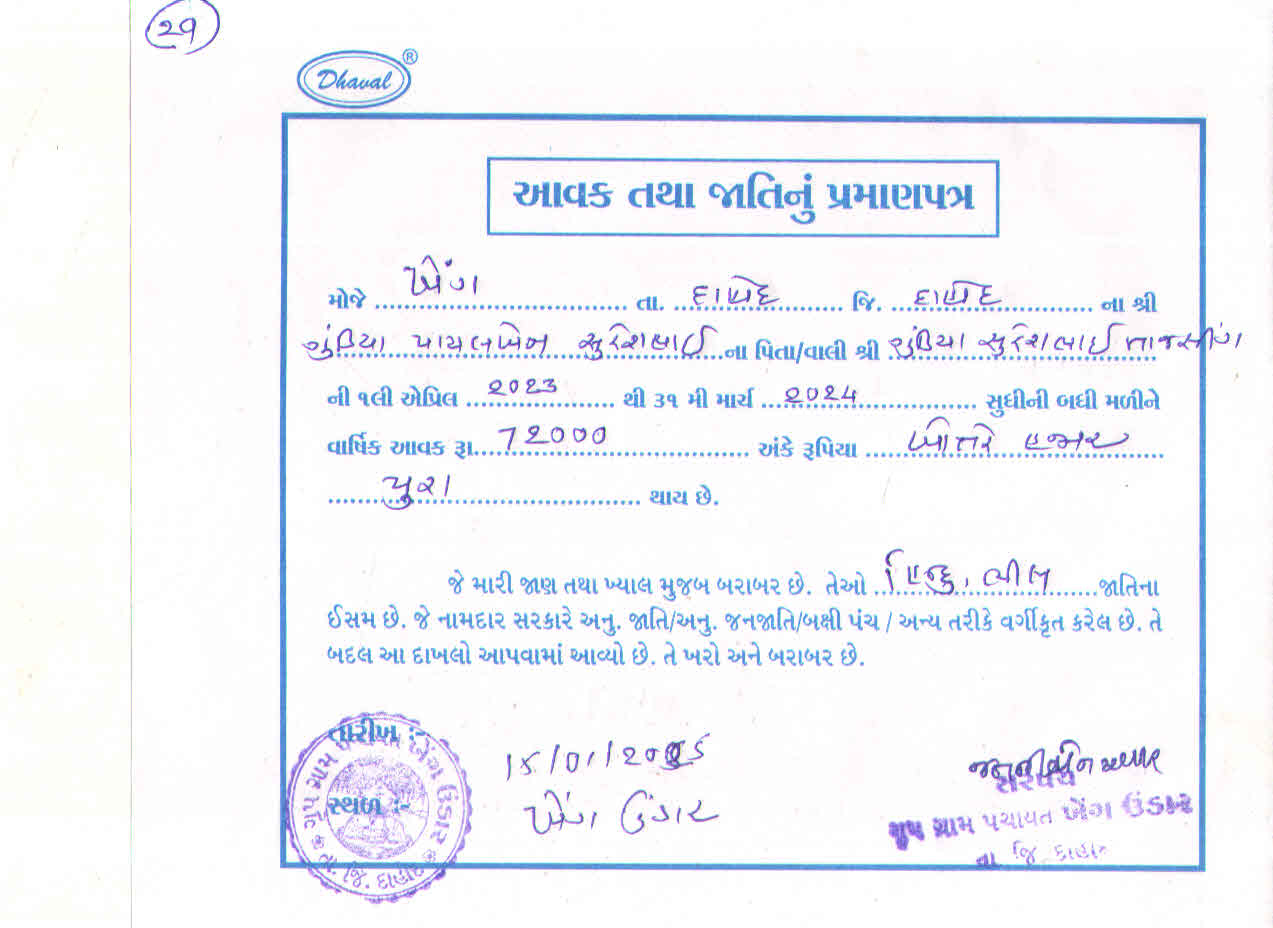 ૨૧
Dhaval ®
આવક તથા જાતિનું પ્રમાણપત્ર
મોજે ખેંગ તા. દાહોદ જિ. દાહોદ ના શ્રી
ગુંડિયા પાયલબેન સુરેશભાઈ ના પિતા/વાલી શ્રી ગુંડિયા સુરેશભાઈ તાજસીંગ
ની ૧લી એપ્રિલ ૨૦૨૩ થી ૩૧ મી માર્ચ ૨૦૨૪ સુધીની બધી મળીને
વાર્ષિક આવક રૂા. 72000 અંકે રૂપિયા બોતેર હજાર
પુરા થાય છે.
જે મારી જાણ તથા ખ્યાલ મુજબ બરાબર છે. તેઓ હિન્દુ, ભીલ જાતિના
ઈસમ છે. જે નામદાર સરકારે અનુ. જાતિ/અનુ. જનજાતિ/બક્ષી પંચ / અન્ય તરીકે વર્ગીકૃત કરેલ છે. તે
બદલ આ દાખલો આપવામાં આવ્યો છે. તે ખરો અને બરાબર છે.
તારીખ :-
સ્થળ :- ખેંગ ઉંડાર
ગૃપ ગ્રામ પંચાયત ખેંગ ઉંડાર
તા. જિ. દાહોદ
સરપંચ
ગૃપ ગ્રામ પંચાયત ખેંગ ઉંડાર
તા જિ. દાહોદ